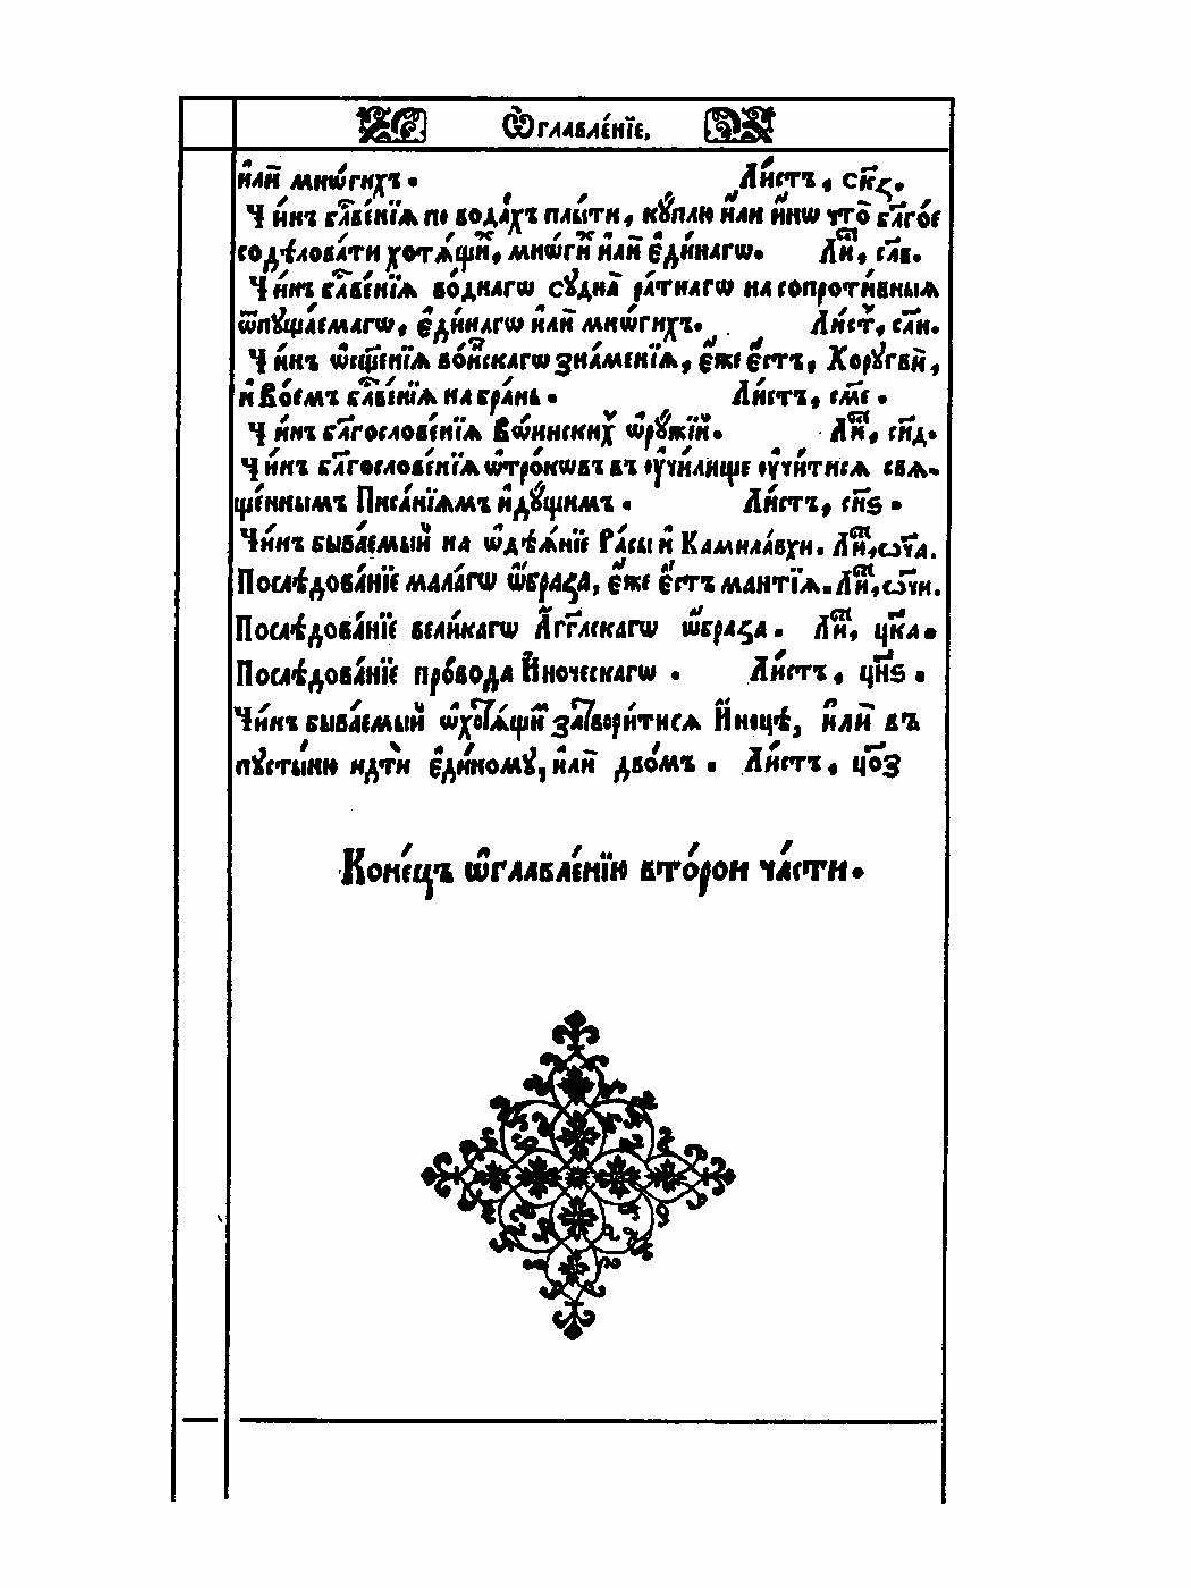 Ѡ҆главле́нїе.
и҆лѝ мнѡ́гихъ. Ли́стъ, ск҃ѕ.
Чи́нъ бл҃ве́нїѧ по вода́хъ плы́ти, кꙋ́плю и҆лѝ и҆́нѡ что̀ бл҃го́е
содѣ́ловати хотѧ́щих̾, мнѡ́гих̾ и҆лѝ є҆ди́нагѡ. Ли́ⷭ҇, сл҃в.
Чи́нъ бл҃ве́нїѧ во́днагѡ сꙋ́дна ра́тнагѡ на сопроти́вныѧ
ѿпꙋща́емагѡ, є҆ди́нагѡ и҆лѝ мнѡ́гихъ. Ли́ст̾, сл҃и.
Чи́нъ ѡ҆сщ҃е́нїѧ во́инскагѡ зна́менїѧ, є҆́же є҆́стъ, Хорꙋгвѝ,
и҆ Во́емъ бл҃ве́нїѧ на бра́нь. Ли́стъ, см҃е.
Чи́нъ бл҃гослове́нїѧ Вѡ́инских̾ ѡ҆рꙋ́жїй. Ли́ⷭ҇, сн҃д.
Чи́нъ бл҃гослове́нїѧ ѡ҆тро́кѡвъ въ ᲂу҆чи́лище ᲂу҆чи́тисѧ свѧ-
ще́ннымъ Писа́нїѧмъ и҆дꙋ́щимъ. Ли́стъ, сн҃ѕ.
Чи́нъ быва́емый на ѡ҆дѣѧ́нїе Ра́сы и҆ Камила́вхи. Ли́ⷭ҇, ѡч҃а.
Послѣ́дова́нїе ма́лагѡ ѡ҆́браза, є҆́же є҆́стъ ма́нтїѧ. Ли́ⷭ҇, ѡч҃и.
Послѣ́дова́нїе вели́кагѡ А҆́гг҃лскагѡ ѡ҆́браза. Ли́ⷭ҇, цк҃а.
Послѣ́дова́нїе про́вода И҆́ноческагѡ. Ли́стъ, цн҃ѕ.
Чи́нъ быва́емый ѡ҆ хотѧ́щих̾ затвори́тисѧ И҆́ноцѣ, и҆лѝ въ
пꙋсты́ню идтѝ є҆ди́номꙋ, и҆лѝ двом̾ъ. Ли́стъ, цо҃з
Коне́цъ ѡ҆главле́нїю второ́и ча́сти.